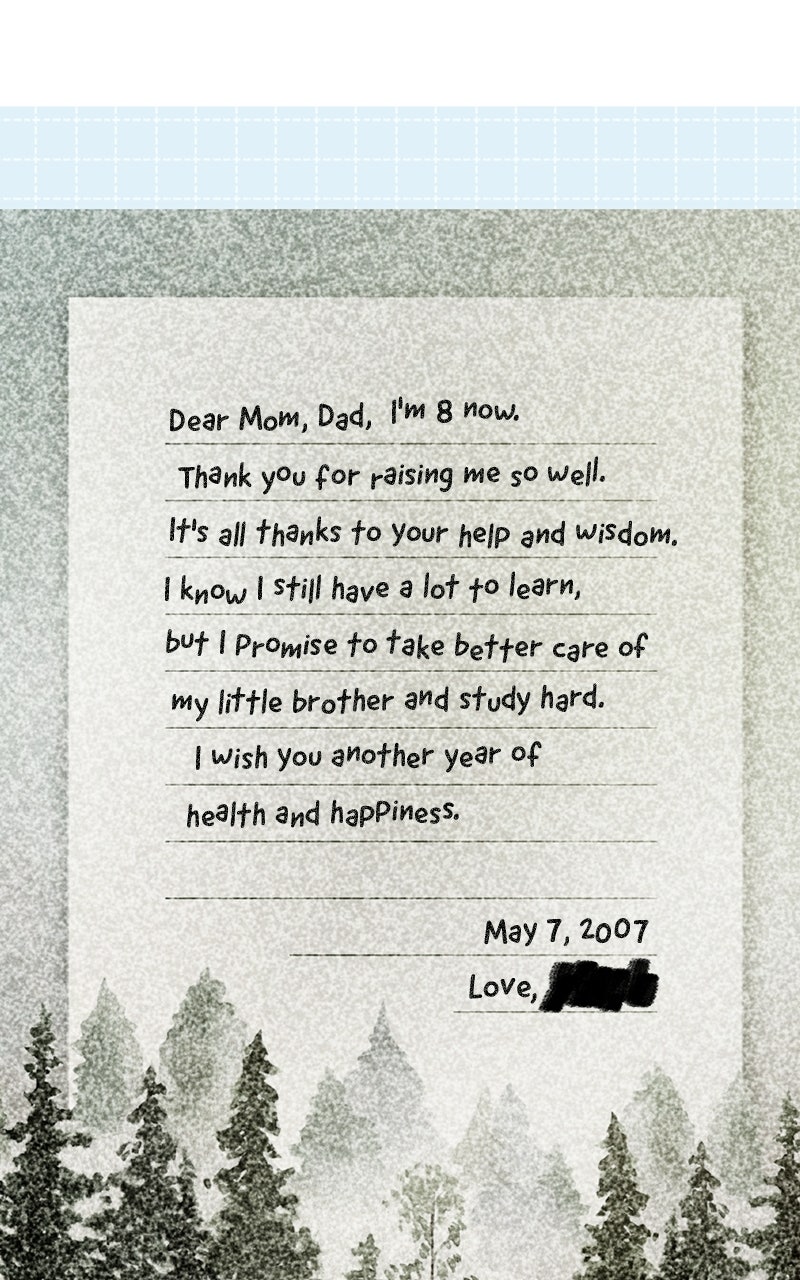 Dear Mom, Dad, I'm 8 now.
Thank you for raising me so well.
It's all thanks to your help and wisdom.
I know I still have a lot to learn,
but I Promise to take better care of
my little brother and study hard.
I wish you another year of
health and happiness.
May 7, 2007
Love,